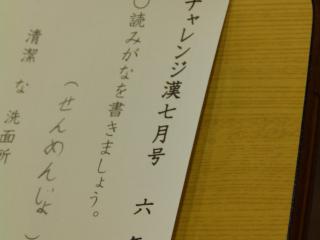 チャレンジ漢七月号 六年
○読みがなを書きましょう。
(せんめんじょ)
清潔な洗面所